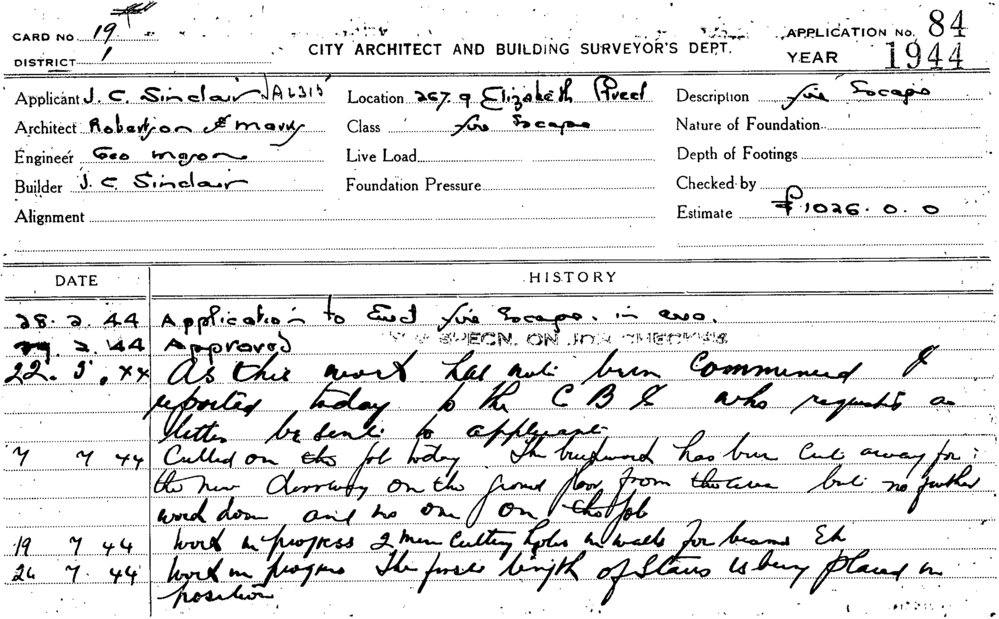 CARD No. 19
DISTRICT 1
CITY ARCHITECT AND BUILDING SURVEYOR'S DEPT.
APPLICATION No. 84
YEAR 1944
Applicant J. C. Sinclair JA6315
Location 267.9 Elizabeth Street
Description fire Escape
Architect Robertson & Marks
Class fire Escape
Nature of Foundation
Engineer Geo Mason
Live Load
Depth of Footings
Builder J. C. Sinclair
Foundation Pressure
Checked by
Alignment
Estimate £1026.0.0
DATE HISTORY
28. 2. 44 Application to Erect fire Escape. in area.
29. 2. 44 Approved SPECN. ON JOB CHECKED
22. 5. 44 As this work has not been Commenced I
reported today to the C B I who requests a
letter be sent to applicant
7 7 44 Called on the job today The brickwork has been Cut away for
the new doorway on the ground floor from the area but no further
work done and no one on the job
19 7 44 Work in progress 2 men Cutting holes in walls for beams Etc
26 7. 44 Work in progress The first length of Stairs is being placed in
position